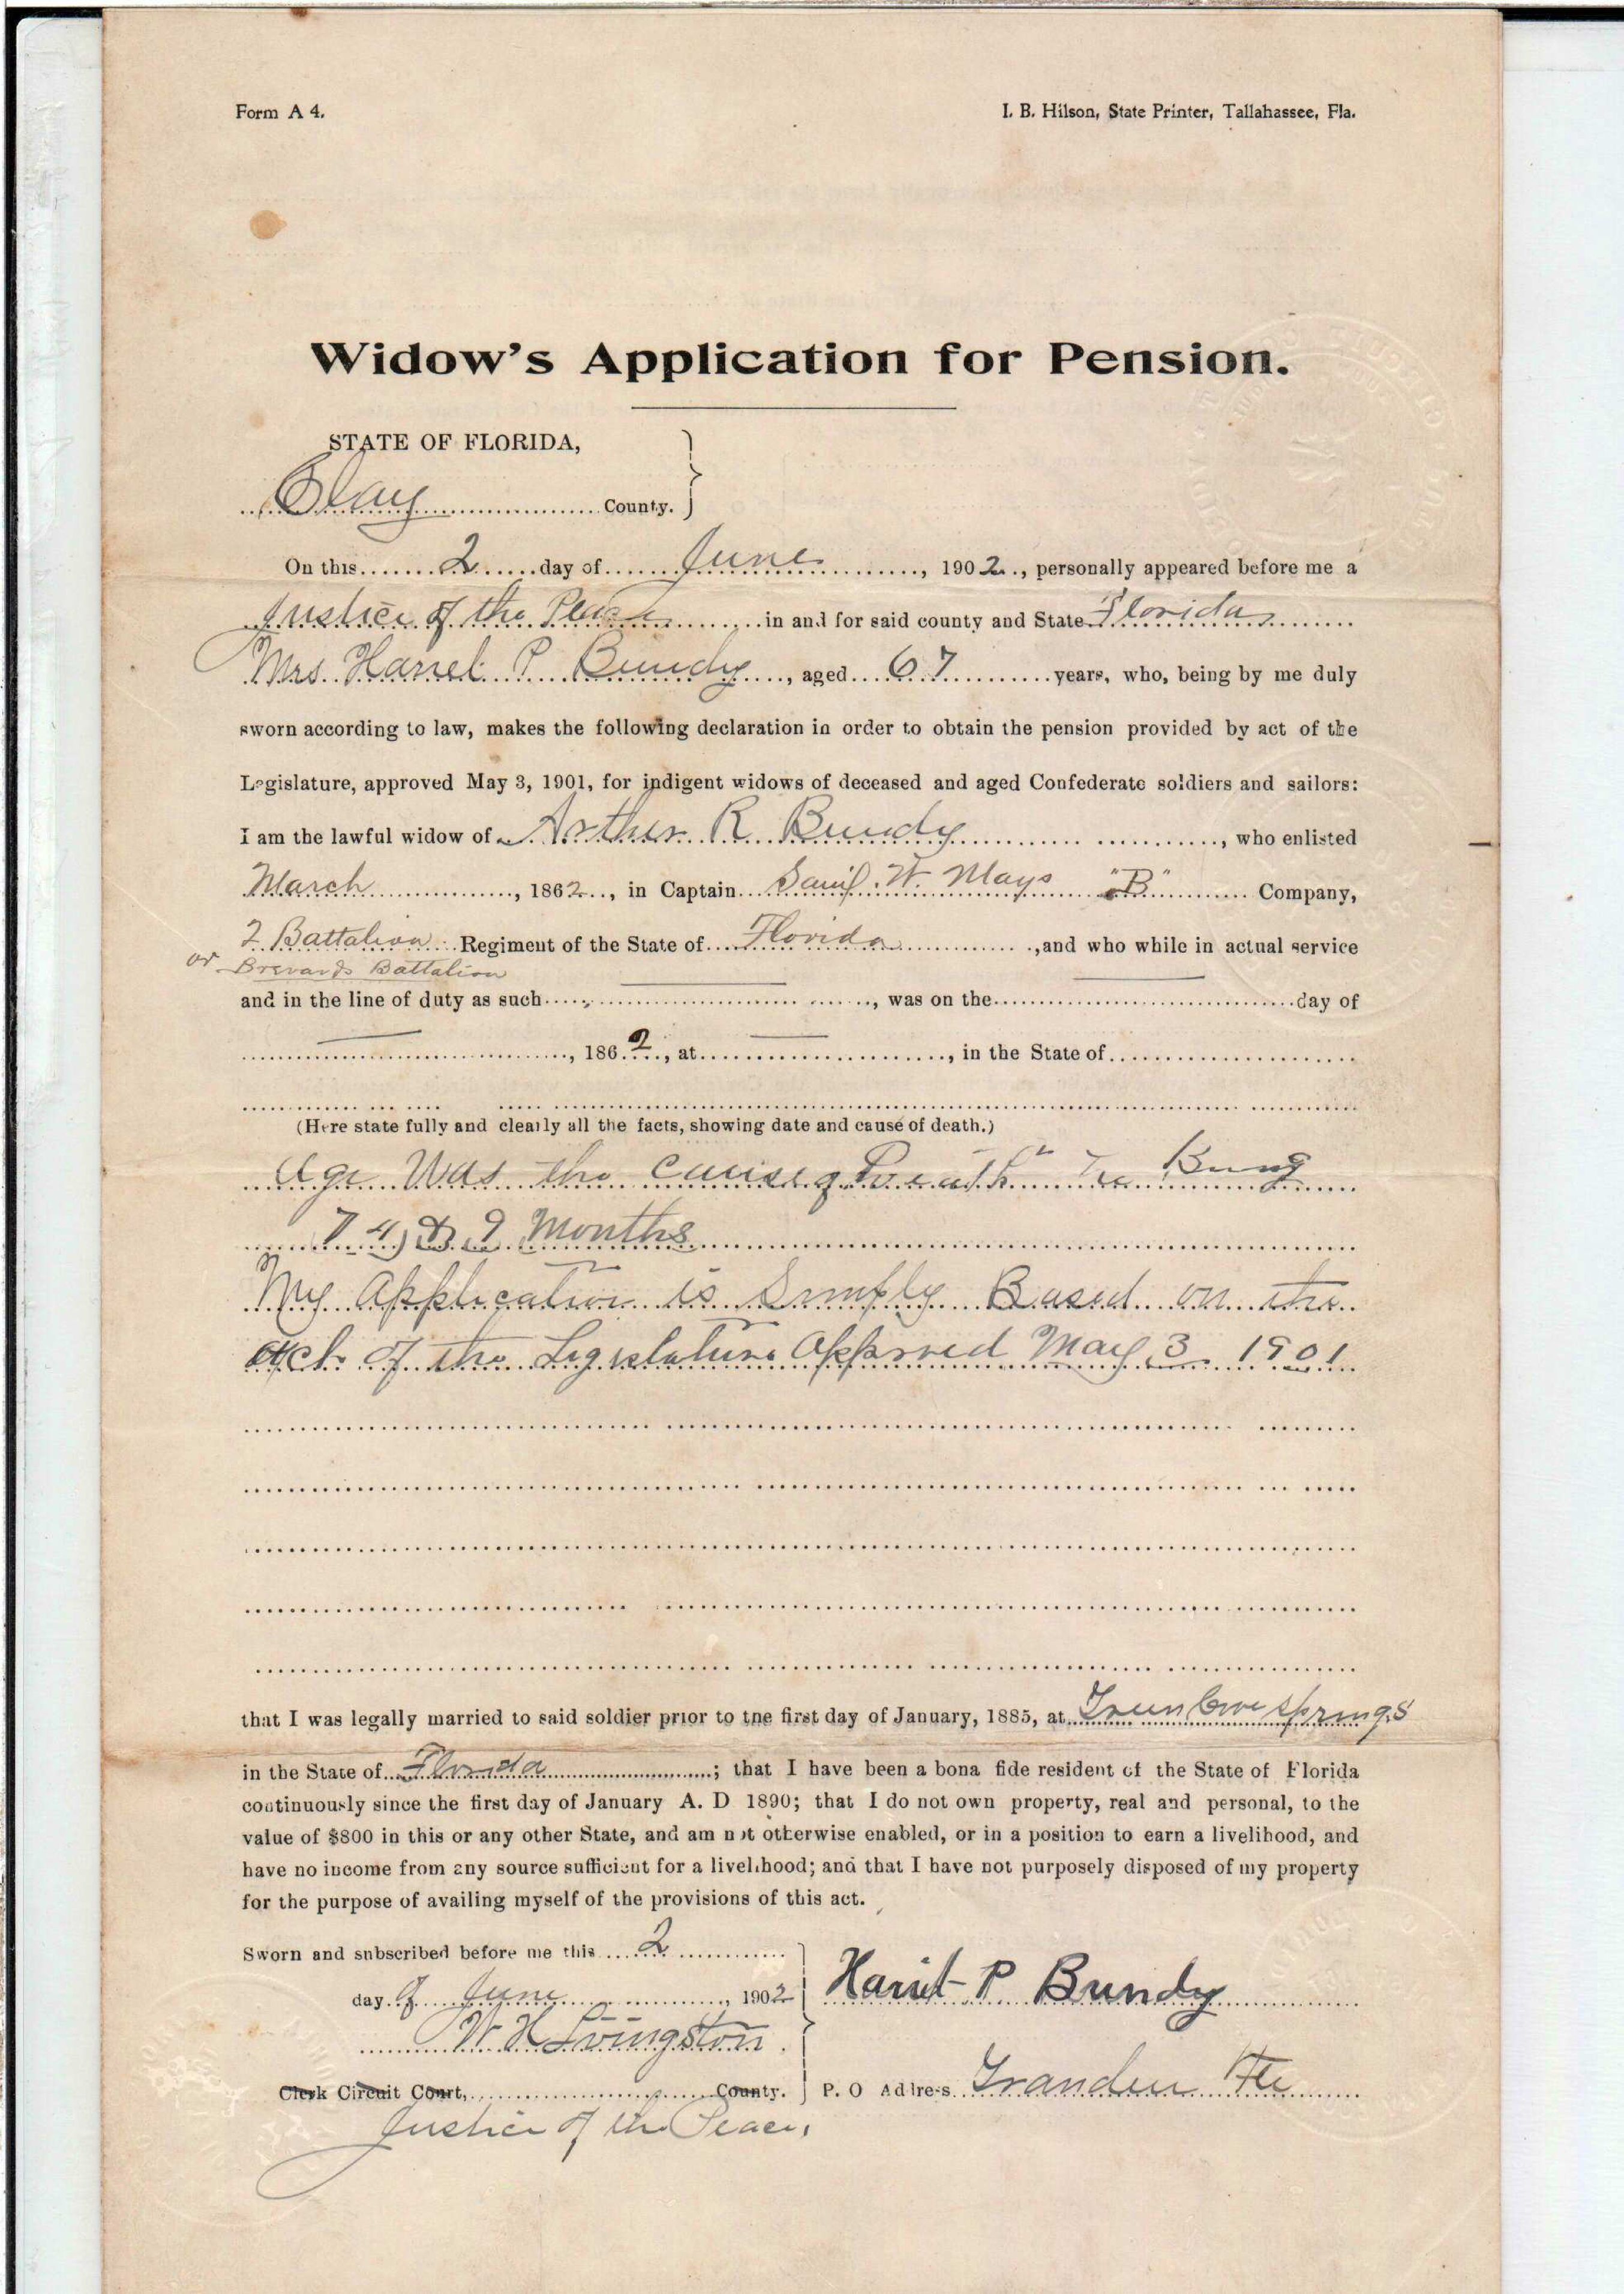 Form A 4.
I. B. Hilson, State Printer, Tallahassee, Fla.
Widow's Application for Pension.
STATE OF FLORIDA,
Clay County.
On this 2 day of June, 1902, personally appeared before me a
Justice of the Peace in and for said county and State Florida
Mrs. Harriet P. Bundy, aged 67 years, who, being by me duly
sworn according to law, makes the following declaration in order to obtain the pension provided by act of the
Legislature, approved May 3, 1901, for indigent widows of deceased and aged Confederate soldiers and sailors:
I am the lawful widow of Arther R. Bundy, who enlisted
March, 1862, in Captain Saml. W. Mays "B" Company,
2 Battalion Regiment of the State of Florida, and who while in actual service
or Brevards Battalion
and in the line of duty as such, was on the day of
, 1862, at, in the State of
(Here state fully and clearly all the facts, showing date and cause of death.)
Age Was the cause of Death He Being
74, & 9 Months
My Application is Simply Based on the
Act of the Legislature Approved May 3 1901
that I was legally married to said soldier prior to the first day of January, 1885, at Green Cove Springs
in the State of Florida; that I have been a bona fide resident of the State of Florida
continuously since the first day of January A. D 1890; that I do not own property, real and personal, to the
value of $800 in this or any other State, and am not otherwise enabled, or in a position to earn a livelihood, and
have no income from any source sufficient for a livelihood; and that I have not purposely disposed of my property
for the purpose of availing myself of the provisions of this act.
Sworn and subscribed before me this 2
day of June, 1902
Harriet P Bundy
W. H Livingston
Clerk Circuit Court, County.
P. O Address Grandin Fla
Justice of the Peace,